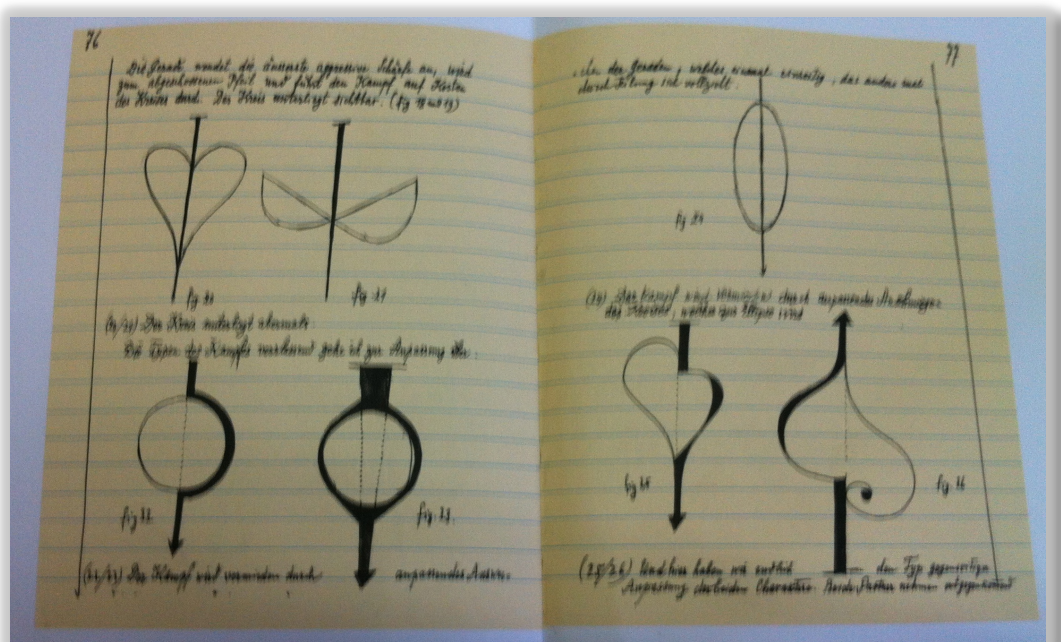 76
Die Gerade wendet die äusserste aggressive Schärfe an, wird
zum abgeschossenen Pfeil und führt den Kampf auf Kosten
des Kreises durch. Der Kreis unterliegt sichtbar. (fig
fig 20
fig 21
Der Kreis unterliegt abermals.
Die Typen des Kampfes verlassend gehe ich zur Anpassung über:
fig 22
fig. 23.
(22/23) Der Kampf wird vermieden durch anpassendes Auswei-
77
chen der Geraden, welches einmal einseitig, das andere mal
durch Teilung sich vollzieht.
fig 24
(24) Der Kampf wird vermieden durch anpassendes
des Kreises, welcher zur Ellipse wird
fig 25
fig 26
(25/26) Und hier haben wir endlich den Typ gegenseitiger
Anpassung der beiden Charaktere. Beide Parteien nehmen